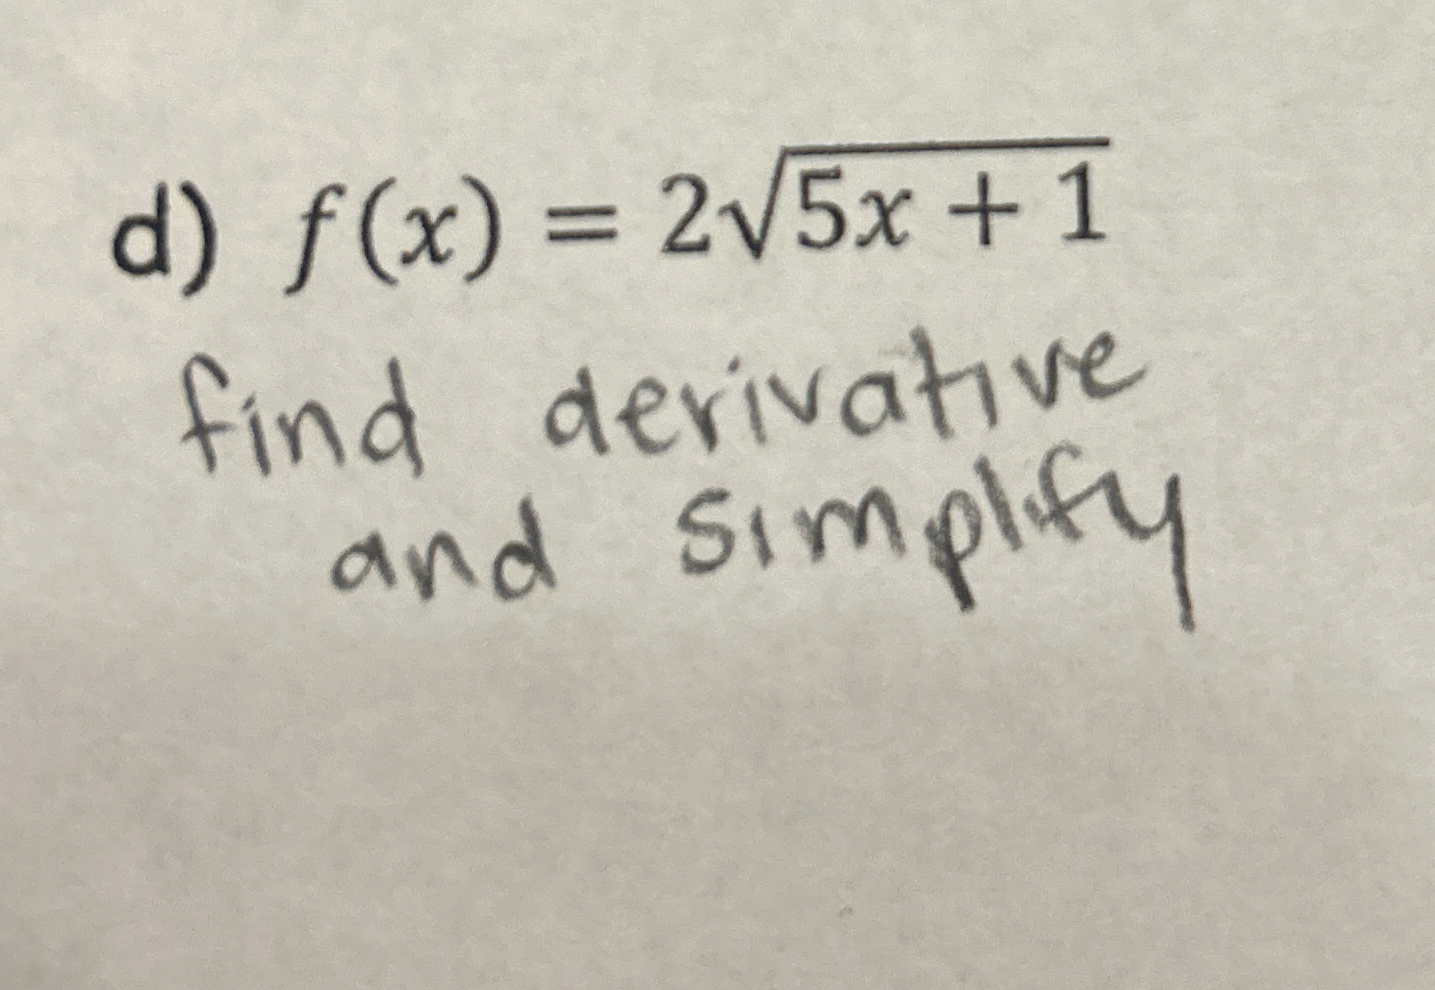 d) f(x) = 2√5x + 1
find derivative
and simplify